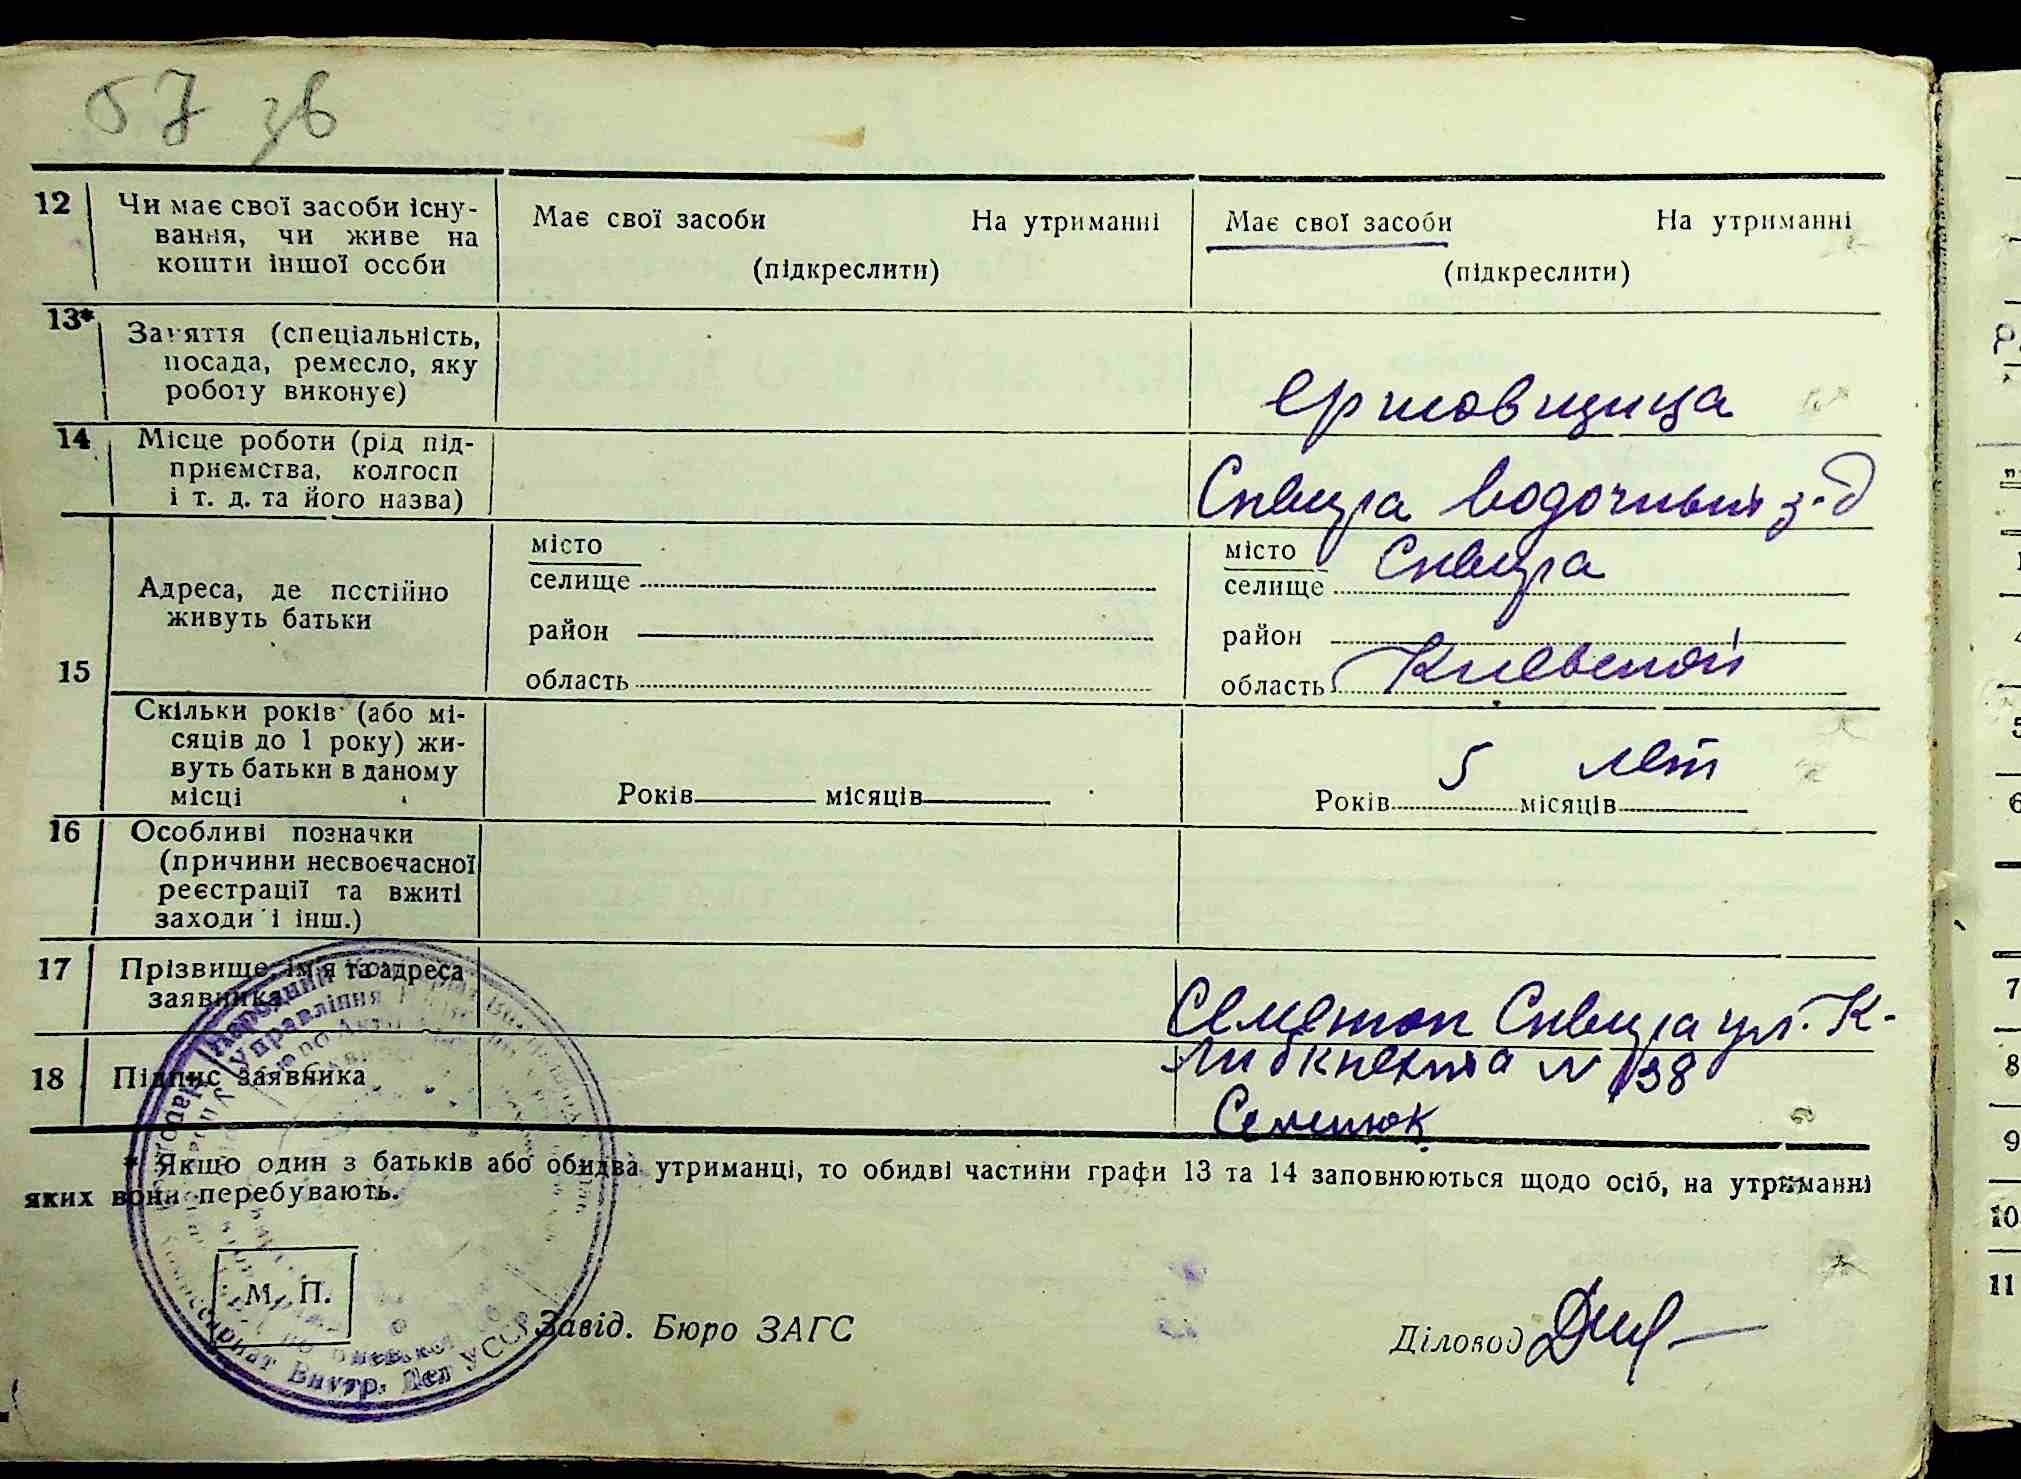 57 зв
12 Чи має свої засоби існу-
вання, чи живе на
кошти іншої особи
Має свої засоби На утриманні
(підкреслити)
Має свої засоби На утриманні
(підкреслити)
13* Заняття (спеціальність,
посада, ремесло, яку
роботу виконує)
14 Місце роботи (рід під-
приємства, колгосп
і т. д. та його назва)
Сквира водочный з-д
15 Адреса, де постійно
живуть батьки
місто
селище
район
область
місто Сквира
селище
район
область Киевской
Скільки років (або мі-
сяців до 1 року) жи-
вуть батьки в даному
місці
Років місяців
5 лет
Років місяців
16 Особливі позначки
(причини несвоєчасної
реєстрації та вжиті
заходи і інш.)
17 Прізвище, ім'я та адреса
заявника
Сквира ул. К-
Либкнехта N 38
18 Підпис заявника
Семенюк
* Якщо один з батьків або обидва утриманці, то обидві частини графи 13 та 14 заповнюються щодо осіб, на утриманні
яких вони перебувають.
М. П.
Завід. Бюро ЗАГС
Діловод
Внутр. Дел УССР
7
8
9
10
11